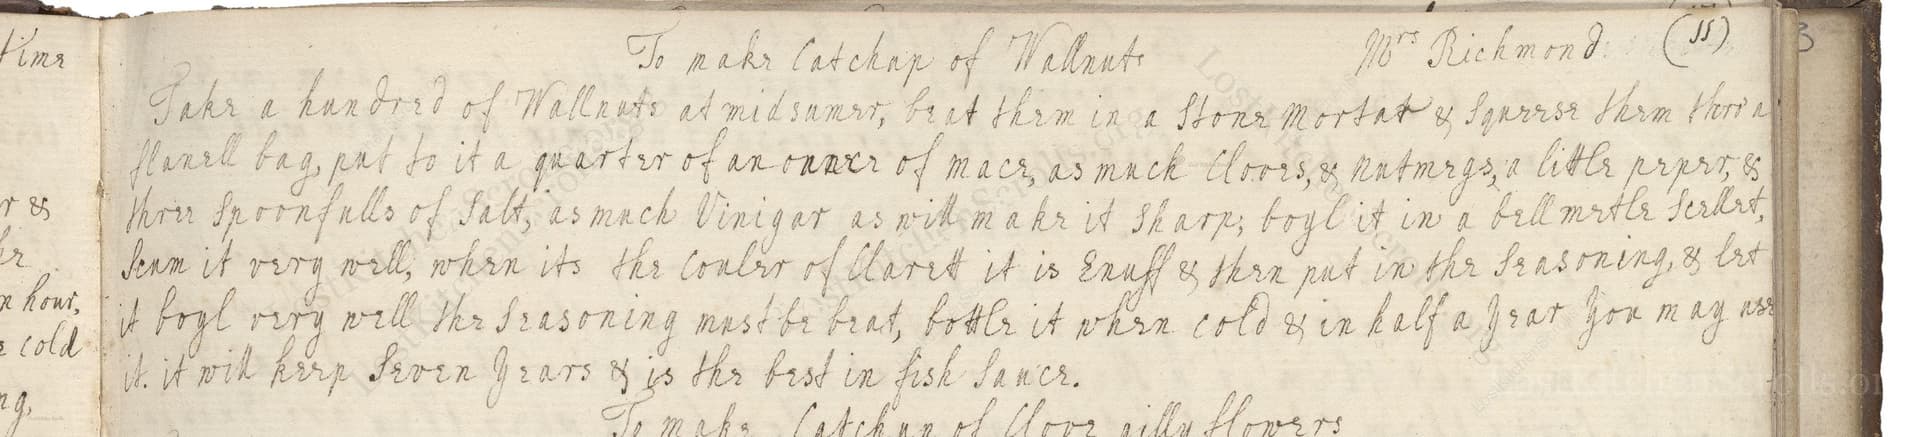 To make Catchup of Wallnuts Mrs Richmond (11) 3
Take a hundred of Wallnuts at midsumer, beat them in a Stone Mortar & Squeese them thro a
flanell bag, put to it a quarter of an ounce of mace, as much Cloves, & nutmegs, a little peper, &
three Spoonfulls of Salt, as much Vinigar as will make it Sharp; boyl it in a bell metle Scellet,
Scum it very well, when its the couler of Clarett it is Enuff & then put in the Seasoning, & let
it boyl very well the Seasoning must be beat, bottle it when cold & in half a Year You may use
it. it will keep Seven Years & is the best in fish Sauce.
To make Catchup of Clove gilly flowers
time
r &
n hour,
cold
ng,